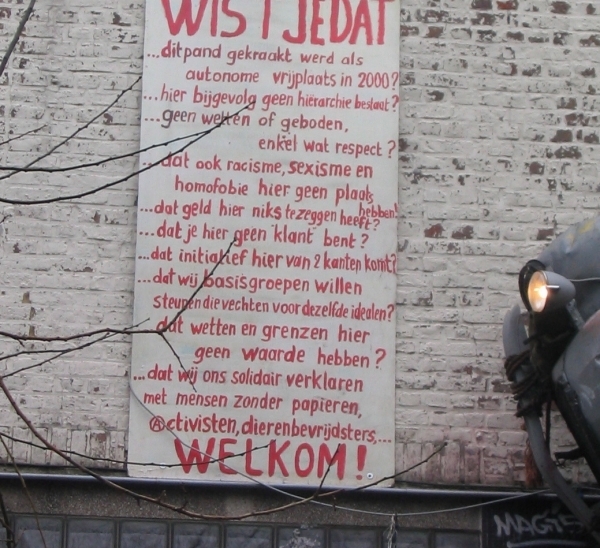 WIST JE DAT
...dit pand gekraakt werd als
autonome vrijplaats in 2000?
...hier bijgevolg geen hiërarchie bestaat?
...geen wetten of geboden,
enkel wat respect?
...dat ook racisme, sexisme en
homofobie hier geen plaats
hebben!
...dat geld hier niks te zeggen heeft?
...dat je hier geen "klant" bent?
...dat initiatief hier van 2 kanten komt?
...dat wij basisgroepen willen
steunen die vechten voor dezelfde idealen?
dat wetten en grenzen hier
geen waarde hebben?
...dat wij ons solidair verklaren
met mensen zonder papieren,
Ⓐctivisten, dierenbevrijdsters,...
WELKOM!